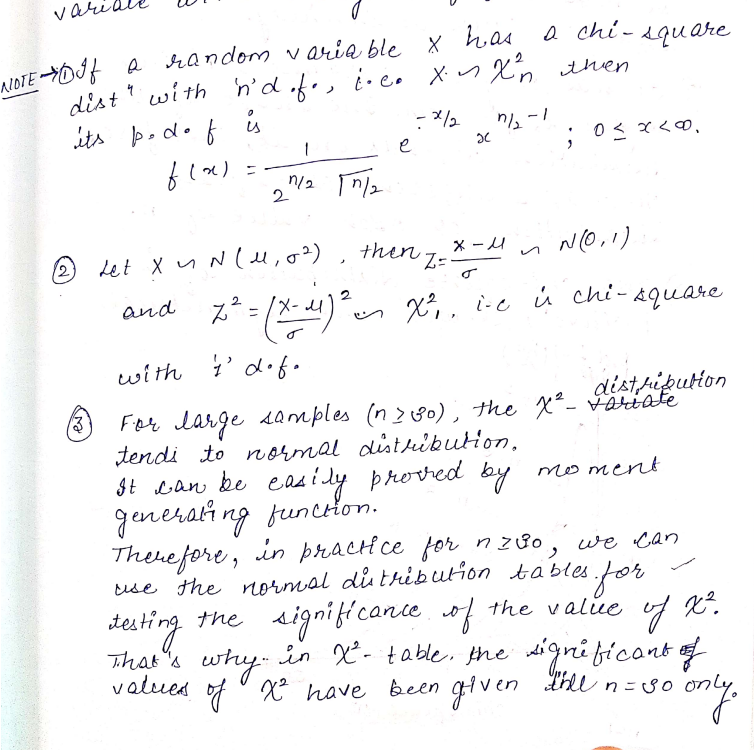 variate
NOTE → ① If a random variable X has a chi-square
distⁿ with 'n' d.f., i.e. X ~ χ²ₙ then
its p.d.f is
f(x) = 1 / (2^(n/2) Γn/2) e^(-x/2) x^(n/2 - 1) ; 0 ≤ x < ∞.
② Let X ~ N(μ, σ²), then Z = (X-μ)/σ ~ N(0,1)
and Z² = ((X-μ)/σ)² ~ χ²₁, i.e is chi-square
with '1' d.f.
③ For large samples (n ≥ 30), the χ² - variate distribution
tends to normal distribution.
It can be easily proved by moment
generating function.
Therefore, in practice for n ≥ 30, we can
use the normal distribution tables for
testing the significance of the value of χ².
That's why in χ² - table, the significant of
values of χ² have been given till n = 30 only.